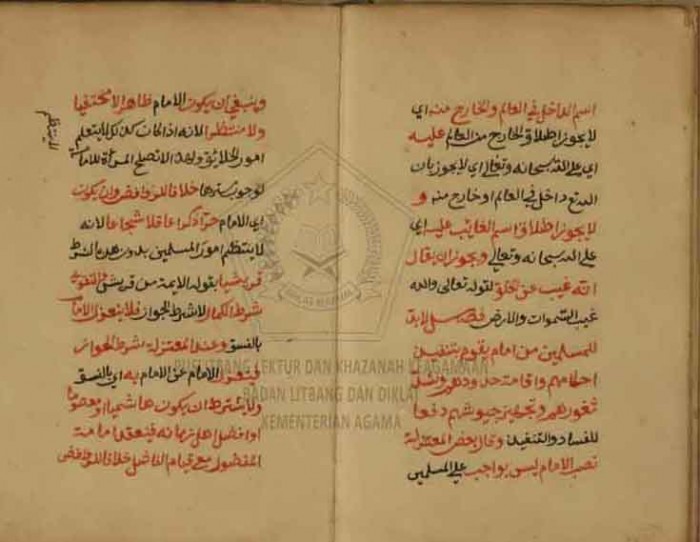 اسم الداخل في العالم والخارج منه اي
لا يجوز اطلاق الخارج من العالم عليه
اي على الله سبحانه وتعالى اي لا يجوز بان
الله تع داخل في العالم او خارج منه و
لا يجوز اطلاق اسم الغائب عليه اي
على الله سبحانه وتعالى ويجوز ان يقال
انه غيب عن الخلق لقوله تعالى ولله
غيب السموات والارض فصل لا بد
للمسلمين من امام يقوم بتنفيذ
احكامهم واقامة حدودهم وسد
ثغورهم وتجهيز جيوشهم دفعا
للفساد والتنفيذ وقال بعض المعتزلة
نصب الامام ليس بواجب على المسلمين
وينبغي ان يكون الامام ظاهرا لا مختفيا
ولا منتظرا لانه اذا كان كذلك لا ينتظم
امور الخلائق ولهذا لا تصلح المرأة للامامة
لوجوب سترها خلافا للروافض وان يكون
اي الامام حرا ذكرا عاقلا شجاعا لانه
لا ينتظم امور المسلمين بدون هذه الشرط
قريشيا بقوله الايمة من قريش والتقوى
شرط الكمال لا شرط الجواز فلا ينعزل الامام
بالفسق وعند المعتزلة شرط الجواز
فينعزل الامام عن الامامة به اي بالفسق
ولا يشترط ان يكون هاشميا او معصوما
او افضل اهل زمانه فينعقد امامة
المفضول مع قيام الفاضل خلافا للروافض
PUSLITBANG LEKTUR DAN KHAZANAH KEAGAMAAN
BADAN LITBANG DAN DIKLAT
KEMENTERIAN AGAMA